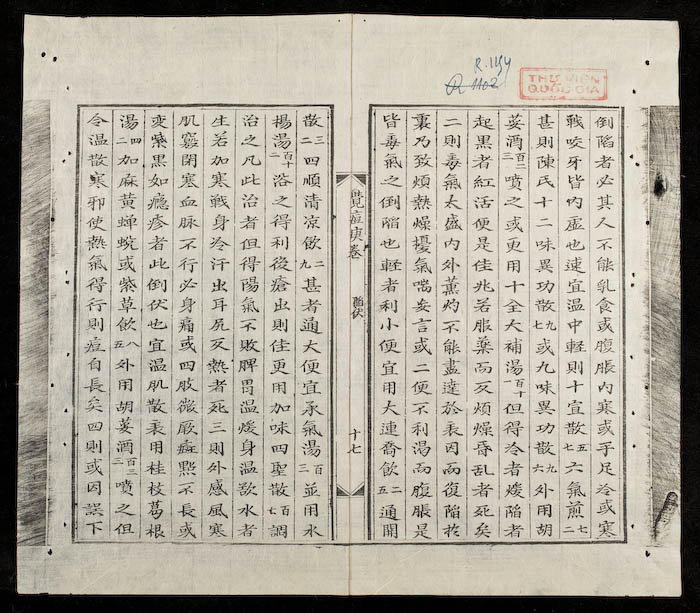 R.1154
R 1102
THƯ VIỆN
QUỐC GIA
倒陷者必其人不能乳食或腹脹内寒或手足冷或寒
戰咬牙皆内虛也速宜温中輕則十宣散五七六氣煎七二
甚則陳氏十二味異功散九七或九味異功散九六外用胡
荽酒百二三噴之或更用十全大補湯百十但得冷者煖者
起黑者紅活便是佳兆若服藥而反煩燥昏乱者死矣
二則毒氣太盛内外薰灼不能盡達於表因而復陷於
裏乃致煩熱燥擾氣喘妄言或二便不利湯而腹脹是
皆毒氣之倒陷也輕者利小便宜用大連喬飲二五通開
痘庚卷 陷伏 十七
散三二四順清凉飲二九甚者通大便宜承氣湯百三並用水
楊湯百十二浴之得利後瘡出則佳更用加味四聖散百七調
治之凡此治者但得陽氣不敗脾胃温煖身温欲水者
生若加寒戰身冷汗出耳尻反熱者死三則外感風寒
肌竅閉寒血脉不行必身痛或四肢微厥痘點不長或
变紫黑如癮疹者此倒伏也宜温肌散表用桂枝葛根
湯四二加麻黄蟬蛻或紫草飲八五外用胡荽酒百二三噴之但
令温散寒邪使熱氣得行則痘自長矣四則或因誤下